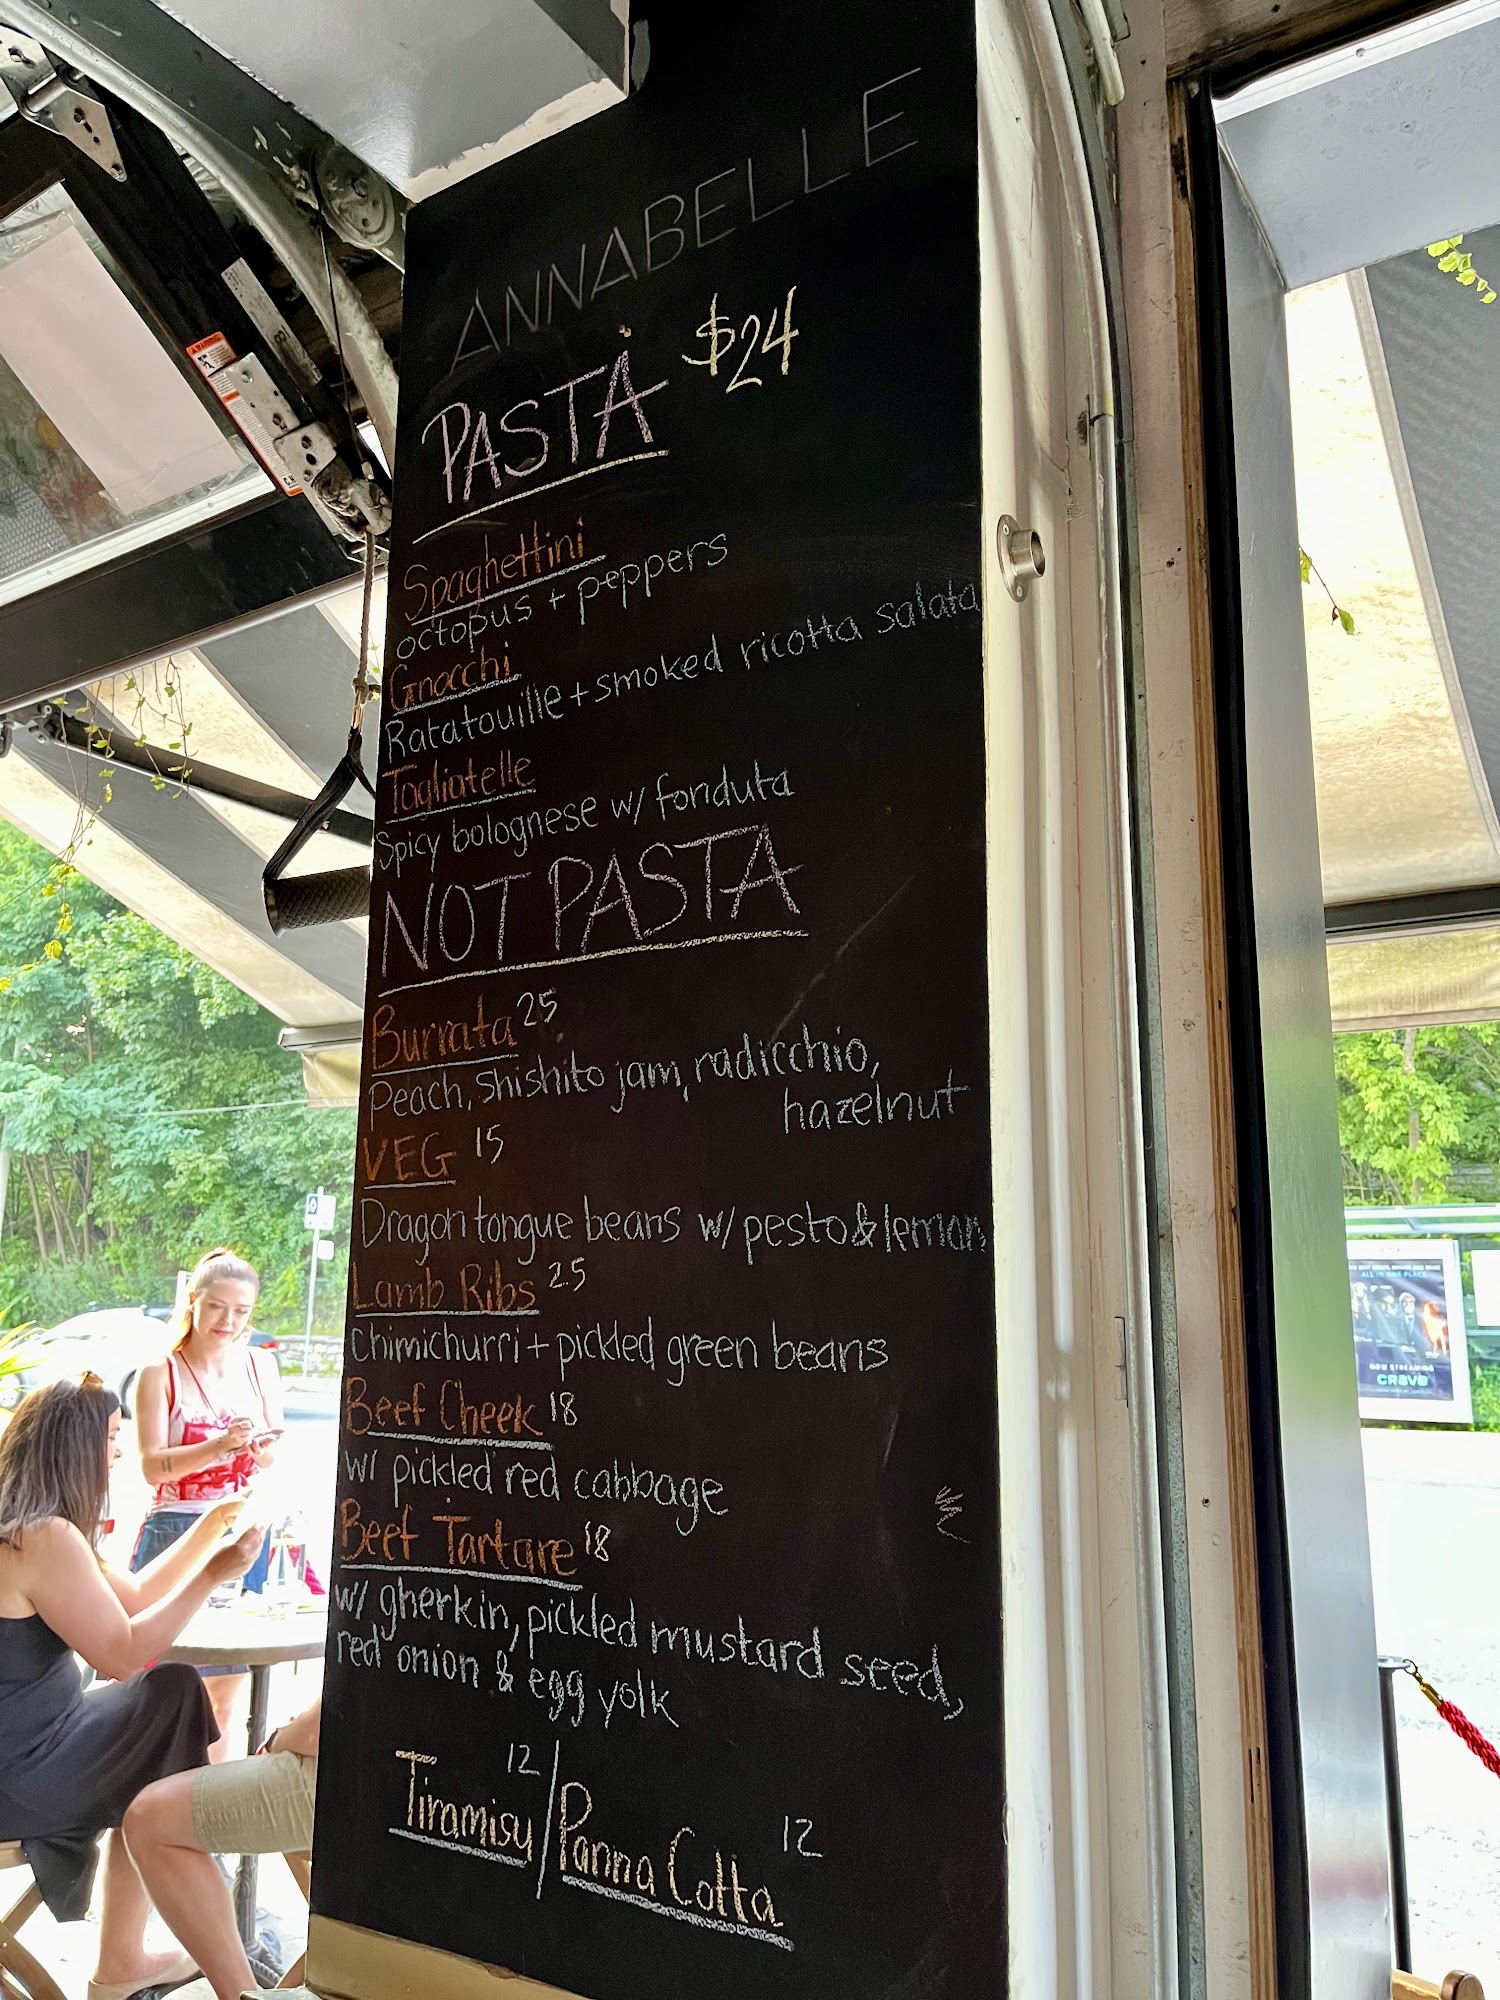 ANNABELLE
PASTA $24
Spaghettini
octopus + peppers
Gnocchi
Ratatouille + smoked ricotta salata
Tagliatelle
Spicy bolognese w/ fonduta
NOT PASTA
Burrata 25
Peach, shishito jam, radicchio,
hazelnut
VEG 15
Dragon tongue beans w/ pesto & lemon
Lamb Ribs 25
Chimichurri + pickled green beans
Beef Cheek 18
w/ pickled red cabbage
Beef Tartare 18
w/ gherkin, pickled mustard seed,
red onion & egg yolk
Tiramisu 12 / Panna Cotta 12
WARNING
ALL IN ONE PLACE
NOW STREAMING
CRAVE